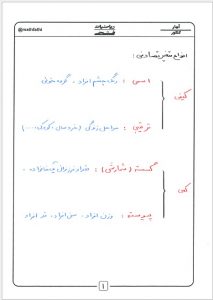 @mathfathi
ریاضیات
فتحی
آمار
کنکور
انواع متغیر تصادفی:
اسمی: رنگ چشم افراد، گروه خونی
کیفی
ترتیبی: مراحل زندگی (خردسال، کودک، ...)
گسسته (شمارشی): تعداد فرزندان یک خانواده
کمی
پیوسته: وزن افراد، سن افراد، قد افراد
1